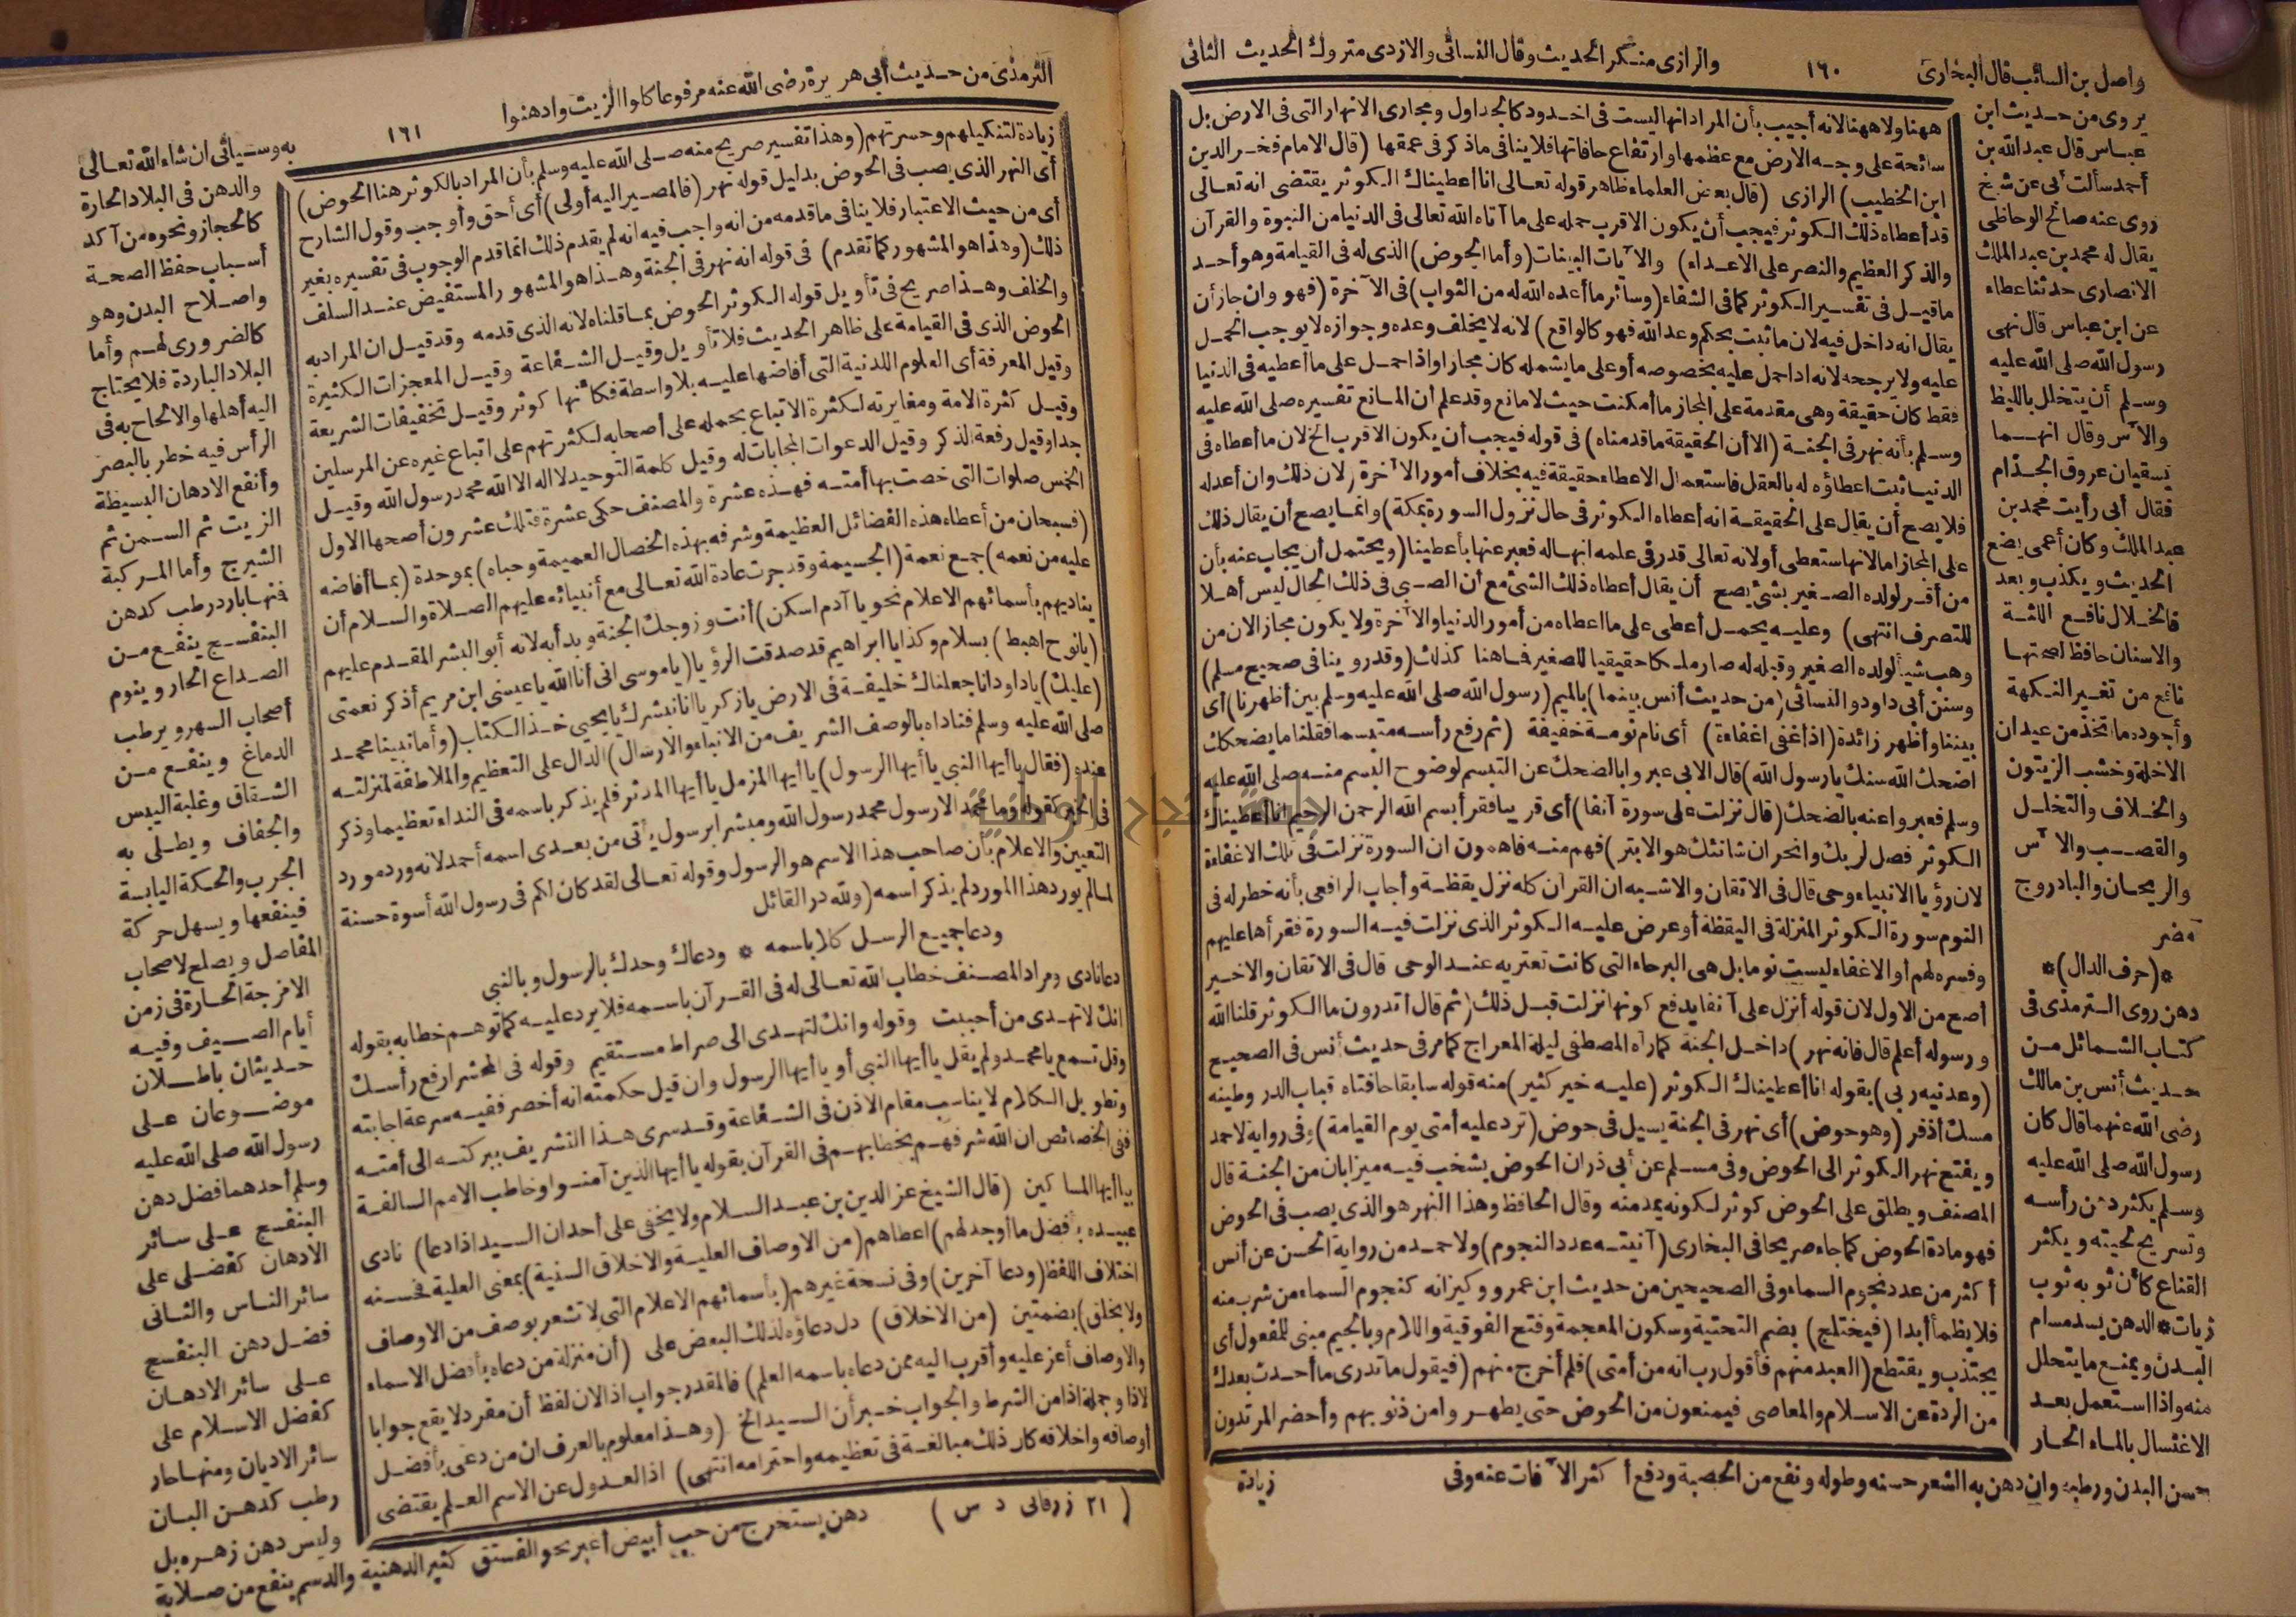 واصل بن السائب قال البخارى ١٦٠ والرازى منكر الحديث وقال النسائى والازدى متروك الحديث الثانى
يروى من حديث ابن
عباس قال عبد الله بن
أحمد سألت أبى عن شيخ
روى عنه صالح الوحاظى
يقال له محمد بن عبد الملك
الانصارى حدثنا عطاء
عن ابن عباس قال نهى
رسول الله صلى الله عليه
وسلم أن يتخلل بالليط
والآس وقال انهما
يسقيان عروق الجذام
فقال أبى رأيت محمد بن
عبد الملك وكان أعمى يضع
الحديث ويكذب وبعد
فالخلال نافع اللثة
والاسنان حافظ لصحتها
نافع من تغير النكهة
وأجوده ما اتخذ من عيدان
الاخلة وخشب الزيتون
والخلاف والتخلل
والقصب والآس
والريحان والباذروج
مضر
*(حرف الدال)*
دهن روى الترمذى فى
كتاب الشمائل من
حديث أنس بن مالك
رضى الله عنهما قال كان
رسول الله صلى الله عليه
وسلم يكثر دهن رأسه
وتسريح لحيته ويكثر
القناع كأن ثوبه ثوب
زيات * الدهن يسد مسام
البدن ويمنع ما يتحلل
منه واذا استعمل بعد
الاغتسال بالماء الحار
حسن البدن ورطبه وان دهن به الشعر حسنه وطوله ونفع من الحصبة ودفع أكثر الآفات عنه وفى
ههنا ولا ههنا لانه أجيب بأن المراد انها ليست فى اخدود كالجداول ومجارى الانهار التى فى الارض بل
سائحة على وجه الارض مع عظمها وارتفاع حافاتها فلا ينافى ما ذكر فى عمقها (قال الامام فخر الدين
ابن الخطيب) الرازى (قال بعض العلماء ظاهر قوله تعالى انا أعطيناك الكوثر يقتضى انه تعالى
قد أعطاه ذلك الكوثر فيجب أن يكون الاقرب حمله على ما آتاه الله تعالى فى الدنيا من النبوة والقرآن
والذكر العظيم والنصر على الاعداء) والآيات البينات (وأما الحوض) الذى له فى القيامة وهو أحد
ما قيل فى تفسير الكوثر كما فى الشفاء (وسائر ما أعده الله له من الثواب) فى الآخرة (فهو وان جاز أن
يقال انه داخل فيه لان ما ثبت بحكم وعد الله فهو كالواقع) لانه لا يخلف وعده وجوازه لا يوجب الحمل
عليه ولا يرجحه لانه اذا حمل عليه بخصوصه أو على ما يشمله كان مجازا واذا حمل على ما أعطيه فى الدنيا
فقط كان حقيقة وهى مقدمة على المجاز ما أمكنت حيث لا مانع وقد علم أن المانع تفسيره صلى الله عليه
وسلم بأنه نهر فى الجنة (الا أن الحقيقة ما قدمناه) فى قوله فيجب أن يكون الاقرب الخ لان ما أعطاه فى
الدنيا ثبت اعطاؤه له بالعقل فاستعمال الاعطاء حقيقة فيه بخلاف أمور الآخرة (لان ذلك وان أعد له
فلا يصح أن يقال على الحقيقة انه أعطاه الكوثر فى حال نزول السورة بمكة) وانما يصح أن يقال ذلك
على المجاز اما لانها ستعطى أو لانه تعالى قدر فى علمه انها له فعبر عنها بأعطينا (ويحتمل أن يجاب عنه بأن
من أقر لولده الصغير بشئ يصح أن يقال أعطاه ذلك الشئ مع أن الصبى فى ذلك الحال ليس أهلا
للتصرف انتهى) وعليه يحمل أعطى على ما اعطاه من أمور الدنيا والآخرة ولا يكون مجازا لان من
وهب شيأ لولده الصغير وقبله له صار ملكا حقيقيا للصغير فما هنا كذلك (وقد روينا فى صحيح مسلم)
وسنن أبى داود والنسائى (من حديث أنس بينما) بالميم (رسول الله صلى الله عليه وسلم بين أظهرنا) أى
بيننا وأظهر زائدة (اذ أغفى اغفاءة) أى نام نومة خفيفة (ثم رفع رأسه متبسما فقلنا ما يضحكك
اضحك الله سنك يا رسول الله) قال الابى عبروا بالضحك عن التبسم لوضوح البسم منه صلى الله عليه
وسلم فعبروا عنه بالضحك (قال نزلت على سورة آنفا) أى قريبا فقرأ بسم الله الرحمن الرحيم انا أعطيناك
الكوثر فصل لربك وانحر ان شانئك هو الابتر) فهم منه فاهمون ان السورة نزلت فى تلك الاغفاءة
لان رؤيا الانبياء وحى قال فى الاتقان والاشبه ان القرآن كله نزل يقظة وأجاب الرافعى بأنه خطر له فى
النوم سورة الكوثر المنزلة فى اليقظة أو عرض عليه الكوثر الذى نزلت فيه السورة فقرأها عليهم
وفسره لهم أو الاغفاء ليست نوما بل هى البرحاء التى كانت تعتريه عند الوحى قال فى الاتقان والاخير
أصح من الاول لان قوله أنزل على آنفا يدفع كونها نزلت قبل ذلك (ثم قال أتدرون ما الكوثر قلنا الله
ورسوله أعلم قال فانه نهر) داخل الجنة كما رآه المصطفى ليلة المعراج كما مر فى حديث أنس فى الصحيح
(وعدنيه ربى) بقوله انا أعطيناك الكوثر (عليه خير كثير) منه قوله سابقا حافتاه قباب الدر وطينه
مسك أذفر (وهو حوض) أى نهر فى الجنة يسيل فى حوض (ترد عليه أمتى يوم القيامة) وفى رواية لاحمد
ويفتح نهر الكوثر الى الحوض وفى مسلم عن أبى ذر ان الحوض يشخب فيه ميزابان من الجنة قال
المصنف ويطلق على الحوض كوثر لكونه يمد منه وقال الحافظ وهذا النهر هو الذى يصب فى الحوض
فهو مادة الحوض كما جاء صريحا فى البخارى (آنيته عدد النجوم) ولاحمد من رواية الحسن عن أنس
أكثر من عدد نجوم السماء وفى الصحيحين من حديث ابن عمرو وكيزانه كنجوم السماء من شرب منه
فلا يظمأ أبدا (فيختلج) بضم التحتية وسكون المعجمة وفتح الفوقية واللام وبالجيم مبنى للمفعول أى
يجتذب ويقتطع (العبد منهم فأقول رب انه من أمتى) فلم أخرج منهم (فيقول ما تدرى ما أحدث بعدك
من الردة عن الاسلام والمعاصى فيمنعون من الحوض حتى يطهروا من ذنوبهم وأحضر المرتدون
زيادة
الترمذى من حديث أبى هريرة رضى الله عنه مرفوعا كلوا الزيت وادهنوا ١٦١ به وسيأتى ان شاء الله تعالى
زيادة لتنكيلهم وحسرتهم (وهذا تفسير صريح منه صلى الله عليه وسلم بأن المراد بالكوثر هنا الحوض)
أى النهر الذى يصب فى الحوض بدليل قوله نهر (فالمصير اليه أولى) أى أحق وأوجب وقول الشارح
أى من حيث الاعتبار فلا ينافى ما قدمه من انه واجب فيه انه لم يقدم ذلك انما قدم الوجوب فى تفسيره بغير
ذلك (وهذا هو المشهور كما تقدم) فى قوله انه نهر فى الجنة وهذا هو المشهور المستفيض عند السلف
والخلف وهذا صريح فى تأويل قوله الكوثر الحوض بما قلناه لانه الذى قدمه وقد قيل ان المراد به
الحوض الذى فى القيامة على ظاهر الحديث فلا تأويل وقيل الشفاعة وقيل المعجزات الكثيرة
وقيل المعرفة أى العلوم اللدنية التى أفاضها عليه بلا واسطة فكأنها كوثر وقيل تخفيفات الشريعة
وقيل كثرة الامة ومغايرته لكثرة الاتباع بحمله على أصحابه لكثرتهم على اتباع غيره عن المرسلين
جدا وقيل رفعة الذكر وقيل الدعوات المجابات له وقيل كلمة التوحيد لا اله الا الله محمد رسول الله وقيل
الخمس صلوات التى خصت بها أمته فهذه عشرة والمصنف حكى عشرة فتلك عشرون أصحها الاول
(فسبحان من أعطاه هذه الفضائل العظيمة وشرفه بهذه الخصال العميمة وحباه) بموحدة (بما أفاضه
عليه من نعمه) جمع نعمة (الجسيمة وقد جرت عادة الله تعالى مع أنبيائه عليهم الصلاة والسلام أن
يناديهم بأسمائهم الاعلام نحو يا آدم اسكن) أنت وزوجك الجنة وبدأ به لانه أبو البشر المقدم عليهم
(يا نوح اهبط) بسلام وكذا يا ابراهيم قد صدقت الرؤيا (يا موسى انى أنا الله يا عيسى ابن مريم أذكر نعمتى
(عليك) يا داود انا جعلناك خليفة فى الارض يا زكريا انا نبشرك يا يحيى خذ الكتاب (وأما نبينا محمد
صلى الله عليه وسلم فناداه بالوصف الشريف من الانباء والارسال) الدال على التعظيم والملاطفة لمنزلته
عنده (فقال يا أيها النبى يا أيها الرسول) يا أيها المزمل يا أيها المدثر فلم يذكر باسمه فى النداء تعظيما وذكر
فى الخبر كقوله وما محمد الا رسول محمد رسول الله ومبشرا برسول يأتى من بعدى اسمه أحمد لانه ورد مورد
التعيين والاعلام بأن صاحب هذا الاسم هو الرسول وقوله تعالى لقد كان لكم فى رسول الله أسوة حسنة
لما لم يورد هذا المورد لم يذكر اسمه (ولله در القائل
ودعا جميع الرسل كلا باسمه * ودعاك وحدك بالرسول وبالنبى
دعا نادى ومراد المصنف خطاب الله تعالى له فى القرآن باسمه فلا يرد عليه كما توهم خطابه بقوله
انك لا تهدى من أحببت وقوله وانك لتهدى الى صراط مستقيم وقوله فى المحشر ارفع رأسك
وقل تسمع يا محمد ولم يقل يا أيها النبى أو يا أيها الرسول وان قيل حكمته انه أخصر ففيه سرعة اجابته
وتطويل الكلام لا يناسب مقام الاذن فى الشفاعة وقد سرى هذا التشريف ببركته الى أمته
ففى الخصائص ان الله شرفهم بخطابهم فى القرآن بقوله يا أيها الذين آمنوا وخاطب الامم السالفة
بيا أيها المساكين (قال الشيخ عز الدين بن عبد السلام ولا يخفى على أحد ان السيد اذا دعا) نادى
عبيده بأفضل ما أوجد لهم) اعطاهم (من الاوصاف العلية والاخلاق السنية) بمعنى العلية فحسنه
اختلاف اللفظ (ودعا آخرين) وفى نسخة غيرهم (بأسمائهم الاعلام التى لا تشعر بوصف من الاوصاف
ولا بخلق) بضمتين (من الاخلاق) دل دعاؤه لذلك البعض على (أن منزلة من دعاه بأفضل الاسماء
والاوصاف أعز عليه وأقرب اليه ممن دعاه باسمه العلم) فالمقدر جواب اذا لان لفظ أن مفرد لا يقع جوابا
لاذا وجملة اذا من الشرط والجواب خبر أن السيد الخ (وهذا معلوم بالعرف ان من دعى بأفضل
أوصافه واخلاقه كان ذلك مبالغة فى تعظيمه واحترامه انتهى) اذ العدول عن الاسم العلم يقتضى
(٢١ زرقانى د س)
والدهن فى البلاد الحارة
كالحجاز ونحوه من آكد
أسباب حفظ الصحة
واصلاح البدن وهو
كالضرورى لهم وأما
البلاد الباردة فلا يحتاج
اليه أهلها والالحاح به فى
الرأس فيه خطر بالبصر
وأنفع الادهان البسيطة
الزيت ثم السمن ثم
الشيرج وأما المركبة
فمنها بارد رطب كدهن
البنفسج ينفع من
الصداع الحار وينوم
أصحاب السهر ويرطب
الدماغ وينفع من
الشقاق وغلبة اليبس
والجفاف ويطلى به
الجرب والحكة اليابسة
فينفعها ويسهل حركة
المفاصل ويصلح لاصحاب
الامزجة الحارة فى زمن
أيام الصيف وفيه
حديثان باطلان
موضوعان على
رسول الله صلى الله عليه
وسلم أحدهما فضل دهن
البنفسج على سائر
الادهان كفضلى على
سائر الناس والثانى
فضل دهن البنفسج
على سائر الادهان
كفضل الاسلام على
سائر الاديان ومنها حار
رطب كدهن البان
وليس دهن زهره بل
دهن يستخرج من حب أبيض أغبر نحو الفستق كثير الدهنية والدسم ينفع من صلابة
جامعة النجاح الوطنية